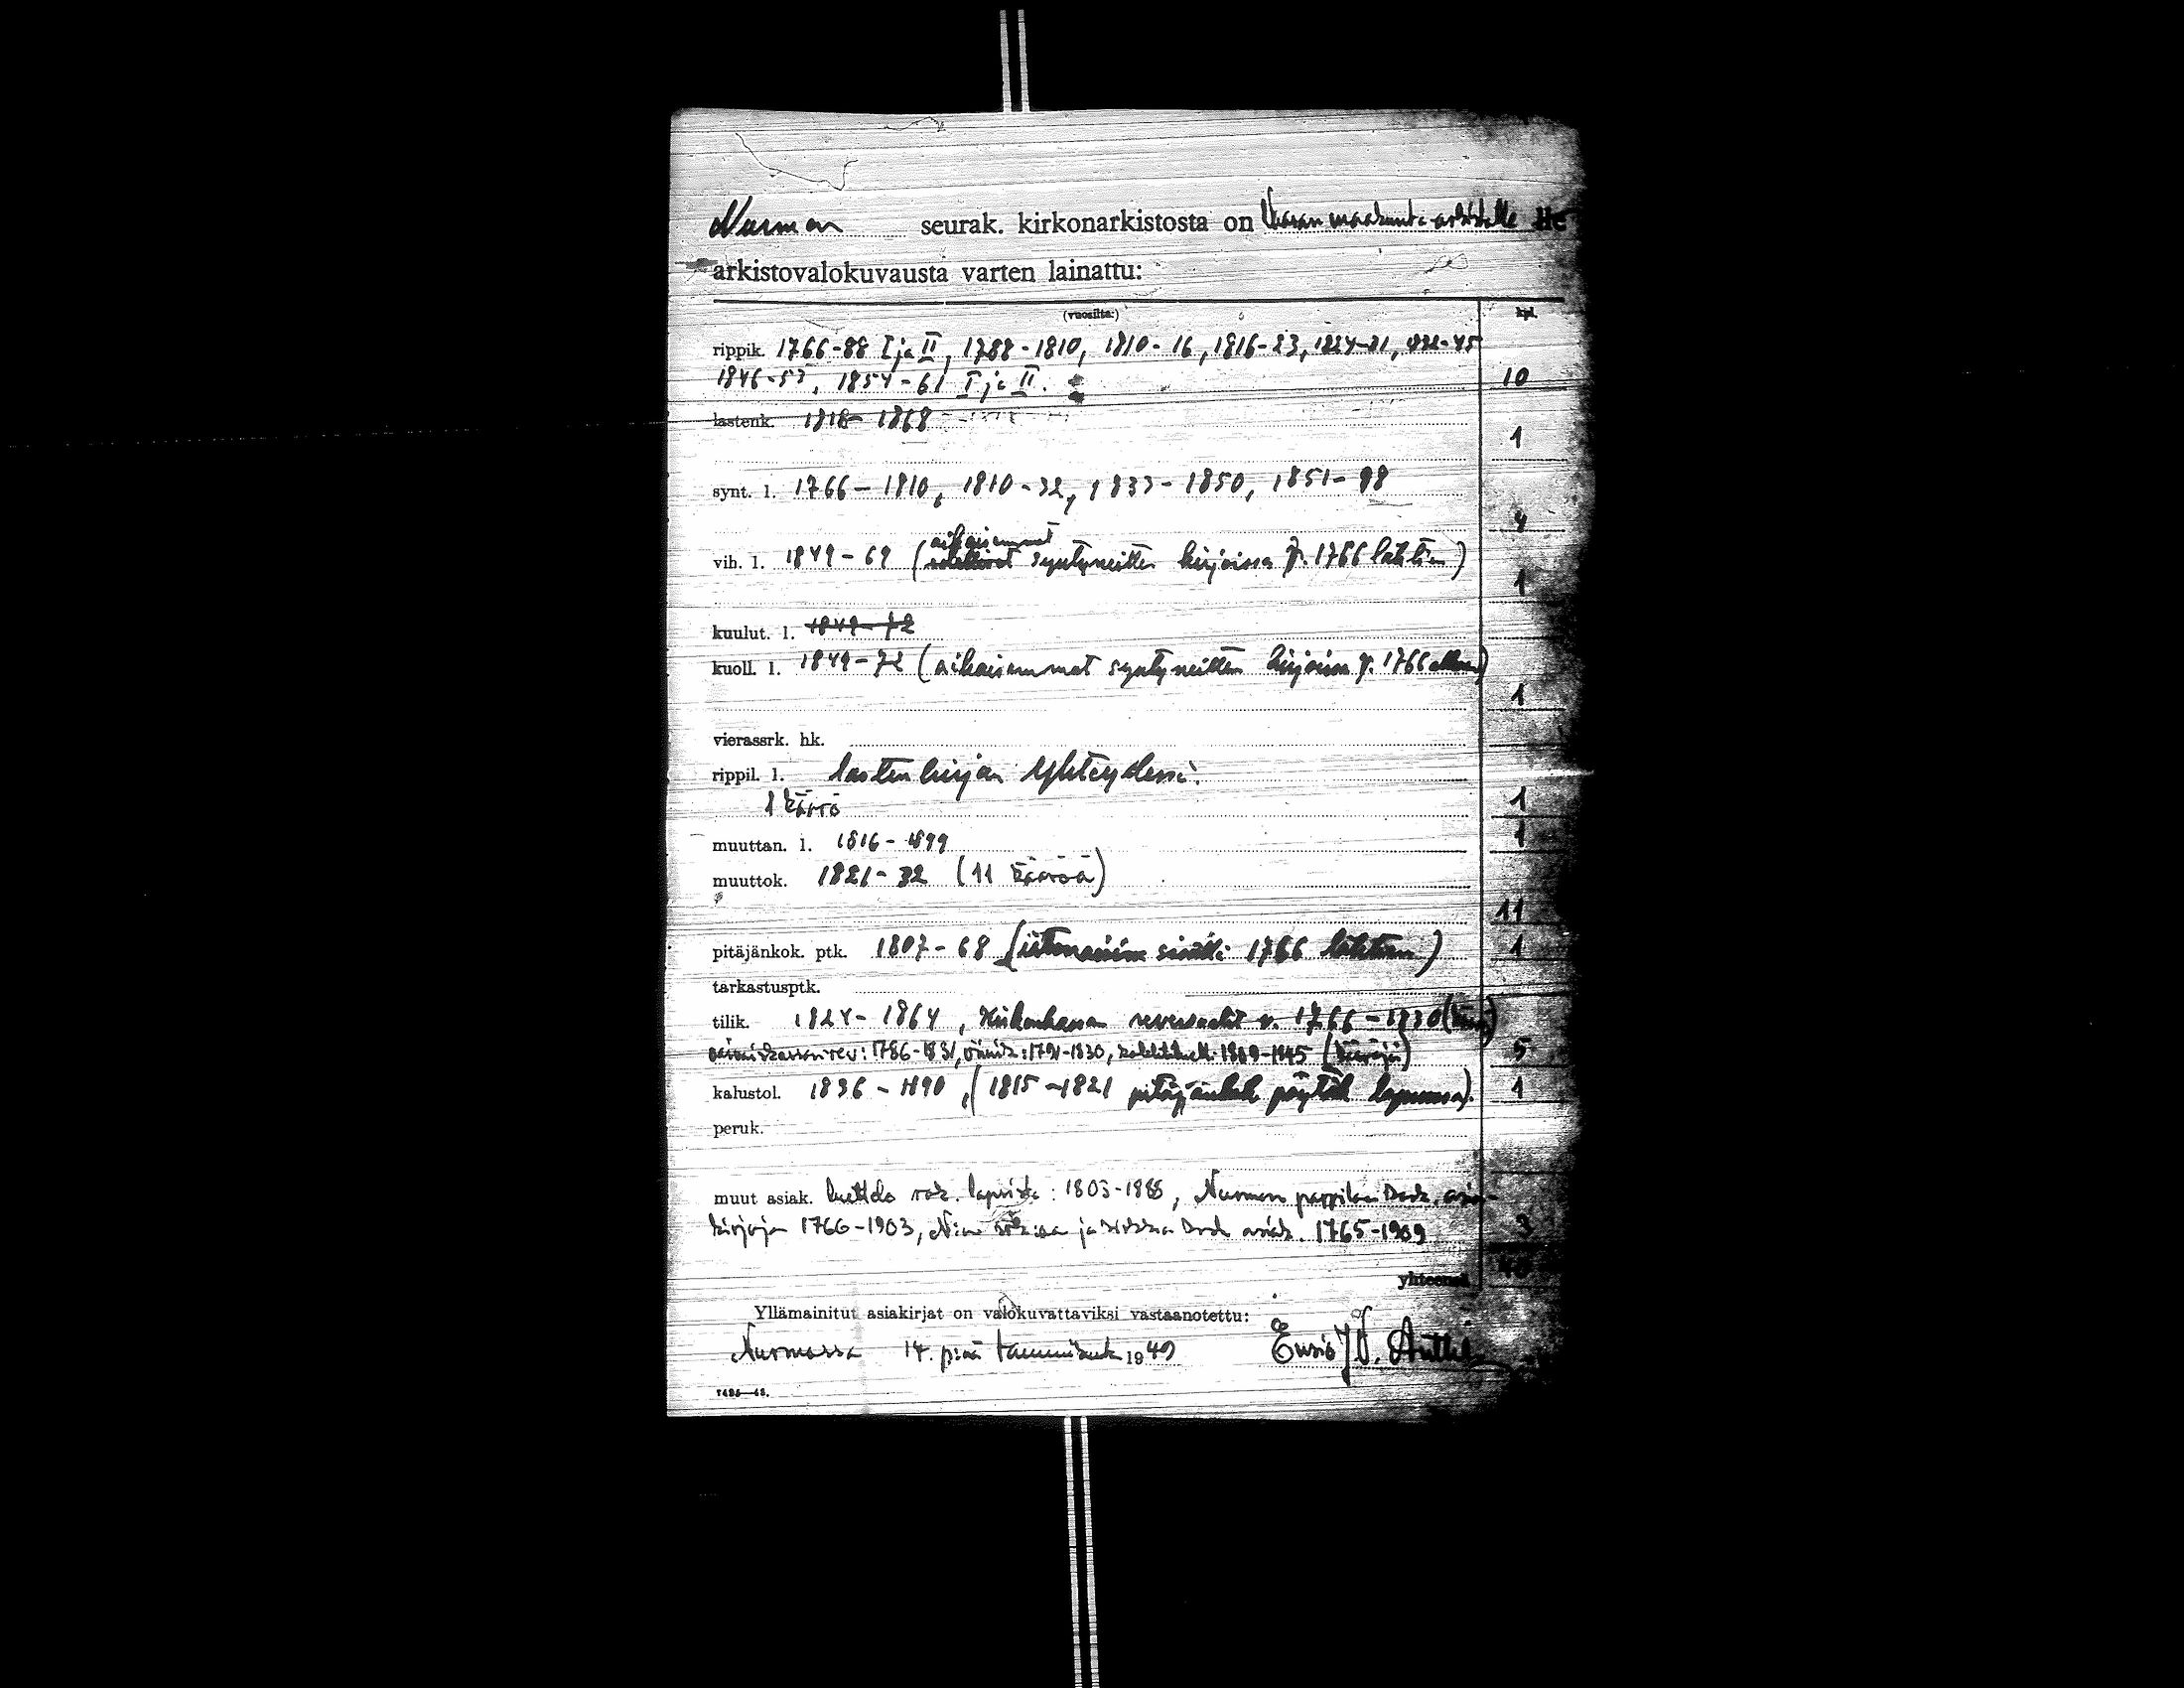 Nurmon seurak. kirkonarkistosta on Vaasan maakunta-arkistolle lle
arkistovalokuvausta varten lainattu:
(vuosilta:) kpl.
rippik. 1766-88 I ja II, 1788-1810, 1810-16, 1816-23, 1824-31, 1832-45
1846-53, 1854-61 I ja II. 10
lastenk. 1818-1868
1
synt. l. 1766-1810, 1810-32, 1833-1850, 1851-98
4
aikaisemmat
vih. l. 1849-69 ( syntyneitten kirjoissa v. 1766 lähtien)
1
kuulut. l. 1849-72
kuoll. l. 1849-72 (aikaisemmat syntyneitten kirjoissa v. 1766 alkaen)
1
vierassrk. hk.
rippil. l. lastenkirjan yhteydessä.
1 käärö 1
muuttan. l. 1816-1899 1
muuttok. 1821-32 (11 kääröä)
11
pitäjänkok. ptk. 1807-68 ( 1766 lähtien) 1
tarkastusptk.
tilik. 1824-1864, Kirkonkassan reversaalit v. 1766-1830
1786-1831, 1791-1830, 1809-1845 5
kalustol. 1836-1890, (1815-1821 pitäjänkok. pöytäk. lopussa). 1
peruk.
muut asiak. luettelo rok. lapsista: 1803-1885, Nurmon pappilan kosk. asia-
kirjoja 1766-1903, ja kirkkoa kosk. asiak. 1765-1909 3
yhteensä
Yllämainitut asiakirjat on valokuvattaviksi vastaanotettu:
Nurmossa 14. p:nä tammikuuta 1949 Ensio J. O. Anttila